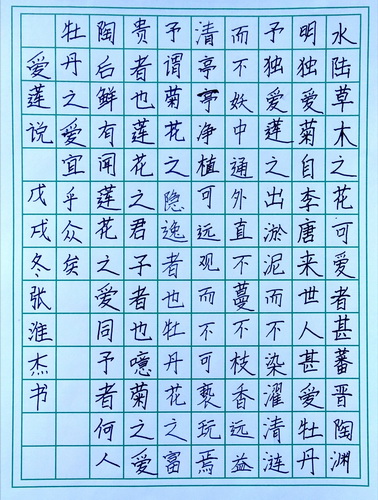 水陆草木之花可爱者甚蕃晋陶渊
明独爱菊自李唐来世人甚爱牡丹
予独爱莲之出淤泥而不染濯清涟
而不妖中通外直不蔓不枝香远益
清亭亭净植可远观而不可亵玩焉
予谓菊花之隐逸者也牡丹花之富
贵者也莲花之君子者也噫菊之爱
陶后鲜有闻莲花之爱同予者何人
牡丹之爱宜乎众矣
爱莲说 戊戌冬张淮杰书